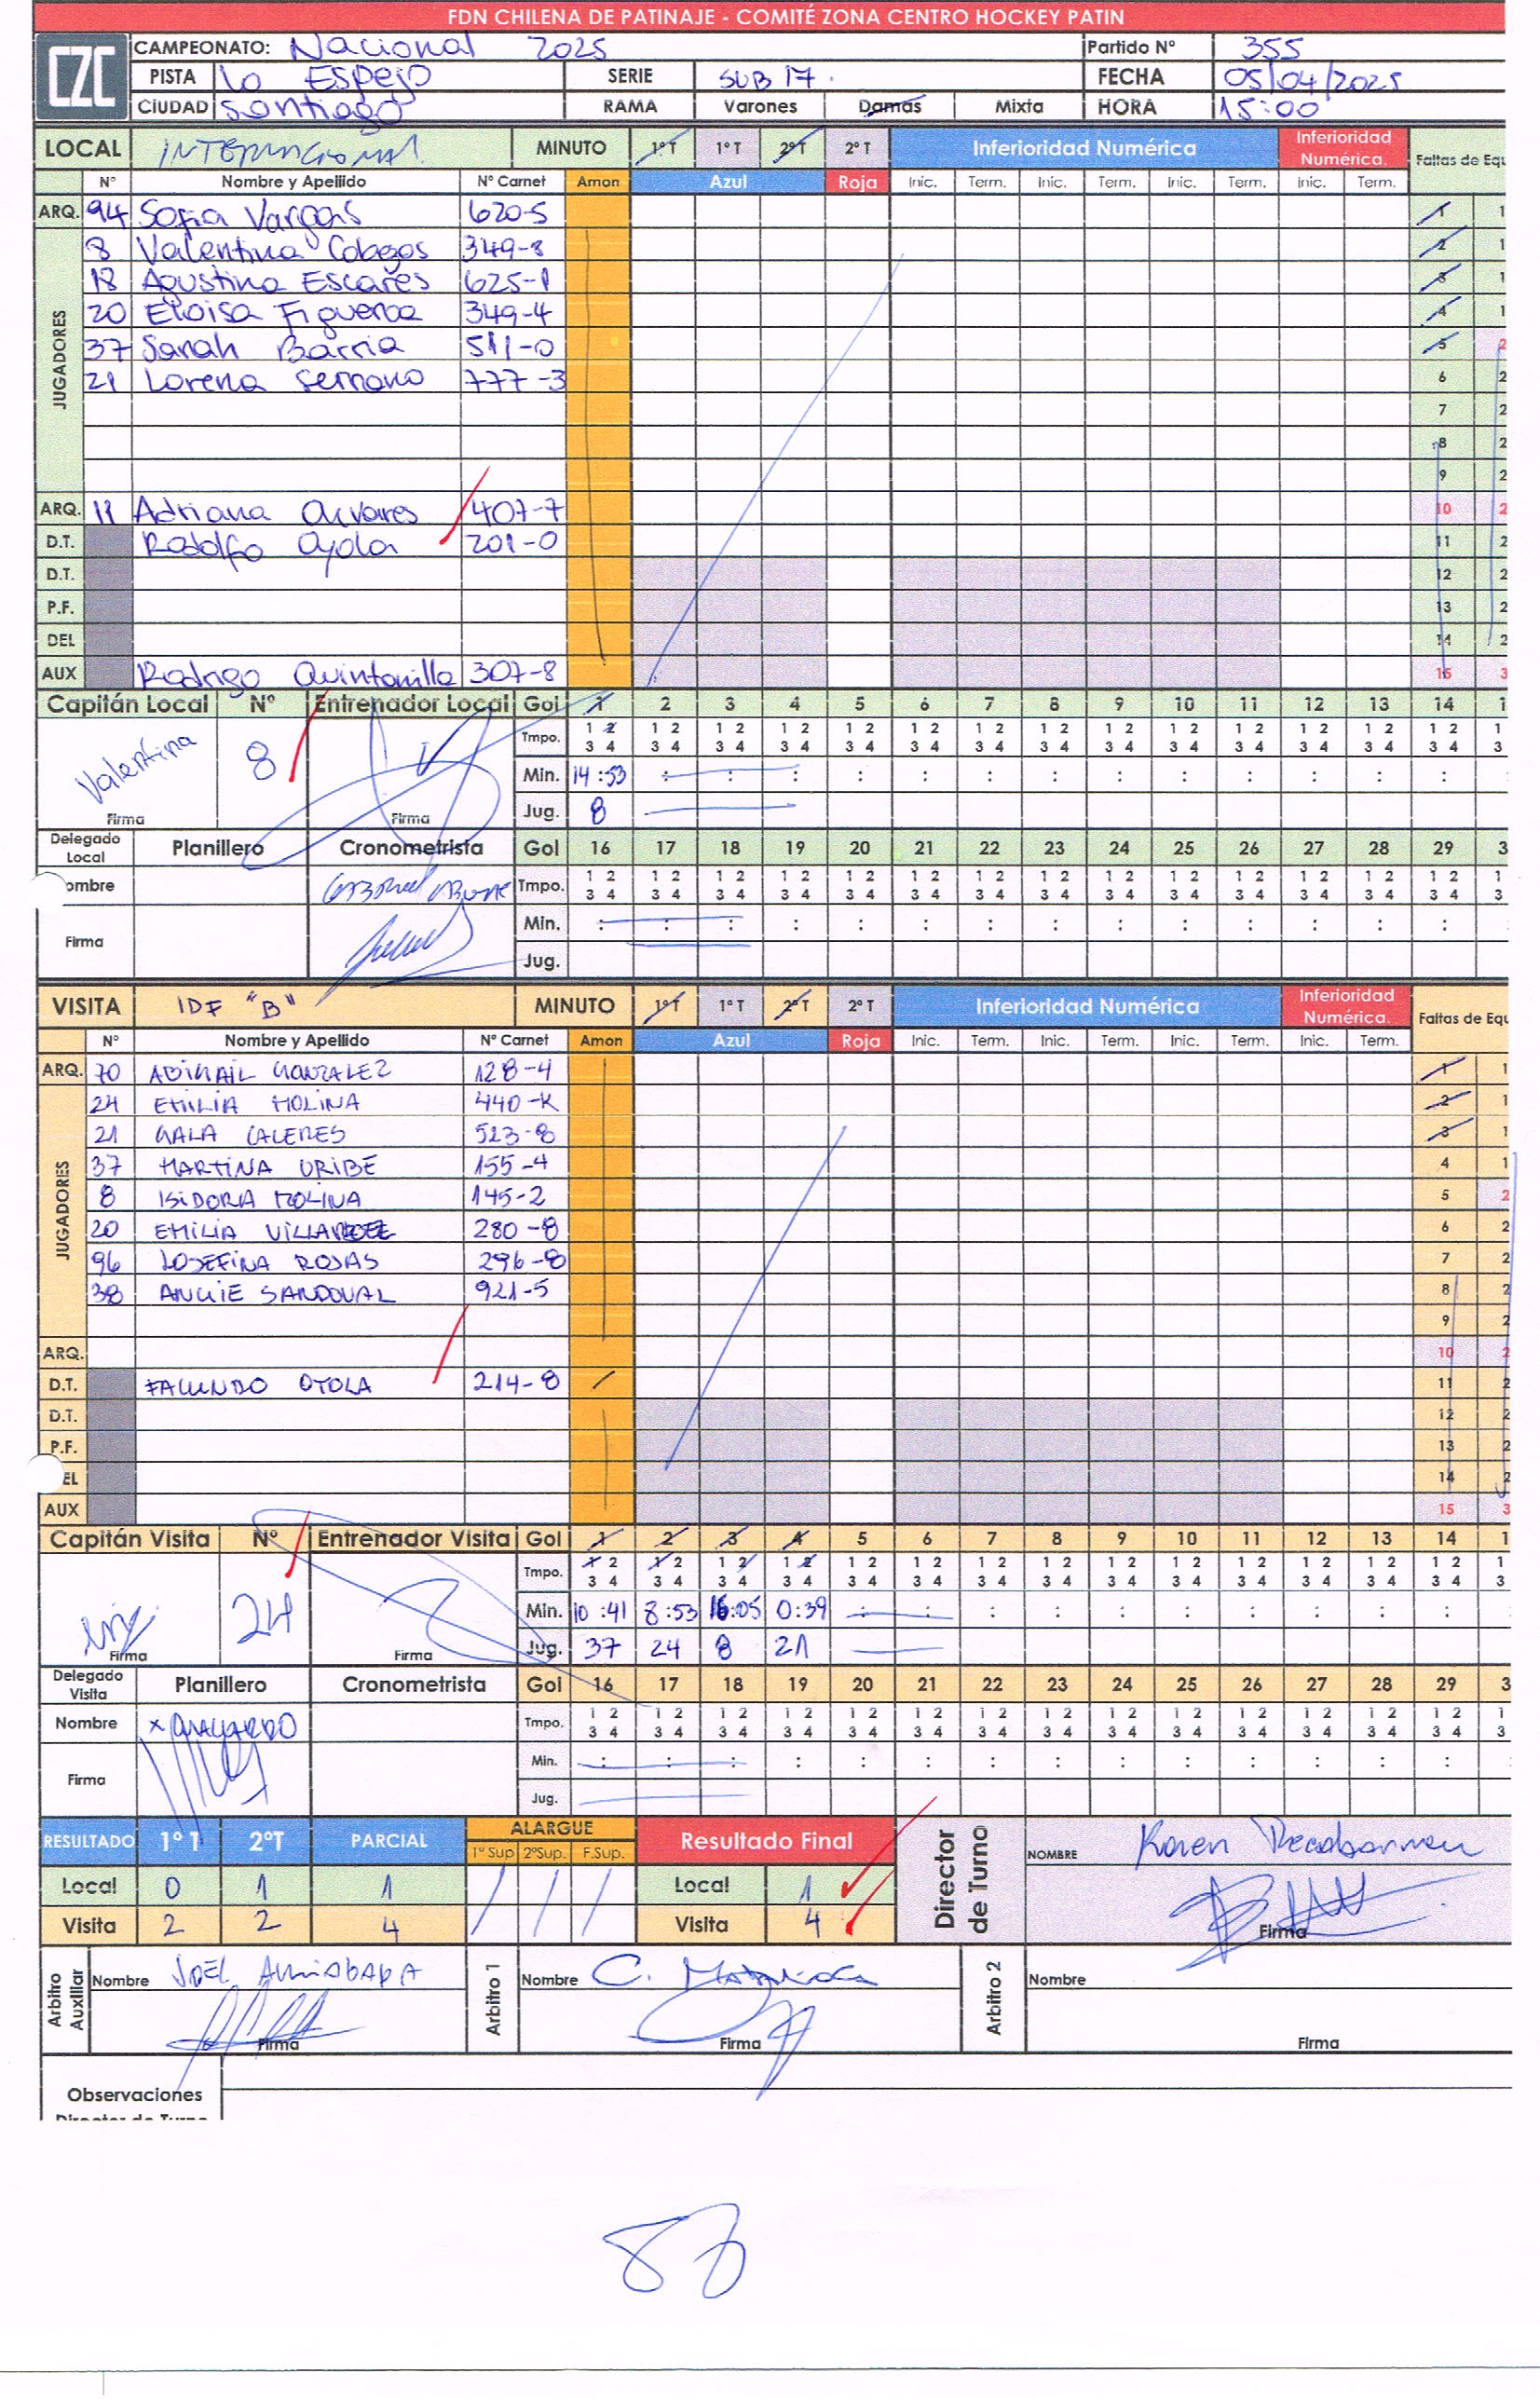 FDN CHILENA DE PATINAJE - COMITÉ ZONA CENTRO HOCKEY PATIN
CZC
CAMPEONATO: Nacional 2025 Partido Nº 355
PISTA Lo Espejo SERIE SUB 17. FECHA 05/04/2025
CIUDAD Santiago RAMA Varones Damas Mixta HORA 15:00
LOCAL INTERNACIONAL MINUTO 1º T 1º T 2º T 2º T Inferioridad Numérica Inferioridad Numérica. Faltas de Equ
Nº Nombre y Apellido Nº Carnet Amon Azul Roja Inic. Term. Inic. Term. Inic. Term. Inic. Term.
ARQ. 94 Sofia Vargas 620-5 1 1
JUGADORES
8 Valentina Cabezas 349-8 2 1
18 Agustina Escares 625-1 3 1
20 Eloisa Figueroa 349-4 4 1
37 Sarah Barria 511-0 5 2
21 Lorena Serrano 777-3 6 2
7 2
8 2
9 2
ARQ. 11 Adriana Alvares 407-7 10 2
D.T. Rodolfo Ayola 201-0 11 2
D.T. 12 2
P.F. 13 2
DEL 14 2
AUX Rodrigo Quintanilla 307-8 15 3
Capitán Local Nº Entrenador Local Gol 1 2 3 4 5 6 7 8 9 10 11 12 13 14 1
Tmpo. 1 2 1 2 1 2 1 2 1 2 1 2 1 2 1 2 1 2 1 2 1 2 1 2 1 2 1 2 1
3 4 3 4 3 4 3 4 3 4 3 4 3 4 3 4 3 4 3 4 3 4 3 4 3 4 3 4 3
Valentina 8 Min. 14:53 : : : : : : : : : : : : :
Firma Firma Jug. 8
Delegado Local Planillero Cronometrista Gol 16 17 18 19 20 21 22 23 24 25 26 27 28 29 3
ombre Tmpo. 1 2 1 2 1 2 1 2 1 2 1 2 1 2 1 2 1 2 1 2 1 2 1 2 1 2 1 2 1
3 4 3 4 3 4 3 4 3 4 3 4 3 4 3 4 3 4 3 4 3 4 3 4 3 4 3 4 3
Firma Min. : : : : : : : : : : : : : :
Jug.
VISITA IDF "B" MINUTO 1º T 1º T 2º T 2º T Inferioridad Numérica Inferioridad Numérica. Faltas de Equ
Nº Nombre y Apellido Nº Carnet Amon Azul Roja Inic. Term. Inic. Term. Inic. Term. Inic. Term.
ARQ. 70 ABIGAIL GONZALEZ 128-4 1 1
JUGADORES
24 EMILIA MOLINA 440-K 2 1
21 GALA CACERES 523-8 3 1
37 MARTINA URIBE 155-4 4 1
8 ISIDORA MOLINA 145-2 5 2
20 EMILIA 280-8 6 2
96 JOSEFINA ROJAS 296-8 7 2
38 ANGIE SANDOVAL 921-5 8 2
9 2
ARQ. 10 2
D.T. FACUNDO OTOLA 214-8 11 2
D.T. 12 2
P.F. 13 2
EL 14 2
AUX 15 3
Capitán Visita Nº Entrenador Visita Gol 1 2 3 4 5 6 7 8 9 10 11 12 13 14 1
Tmpo. 1 2 1 2 1 2 1 2 1 2 1 2 1 2 1 2 1 2 1 2 1 2 1 2 1 2 1 2 1
3 4 3 4 3 4 3 4 3 4 3 4 3 4 3 4 3 4 3 4 3 4 3 4 3 4 3 4 3
24 Min. 10:41 8:53 16:05 0:39 : : : : : : : : : :
Firma Firma Jug. 37 24 8 21
Delegado Visita Planillero Cronometrista Gol 16 17 18 19 20 21 22 23 24 25 26 27 28 29 3
Nombre Tmpo. 1 2 1 2 1 2 1 2 1 2 1 2 1 2 1 2 1 2 1 2 1 2 1 2 1 2 1 2 1
3 4 3 4 3 4 3 4 3 4 3 4 3 4 3 4 3 4 3 4 3 4 3 4 3 4 3 4 3
Firma Min. : : : : : : : : : : : : : :
Jug.
RESULTADO 1º T 2ºT PARCIAL ALARGUE Resultado Final Director de Turno NOMBRE Karen
1º Sup 2ºSup. F.Sup.
Local 0 1 1 / / / Local 1
Visita 2 2 4 Visita 4 Firma
Arbitro Auxiliar Nombre JOEL Arbitro 1 Nombre C. Arbitro 2 Nombre
Firma Firma Firma
Observaciones
Director de Turno